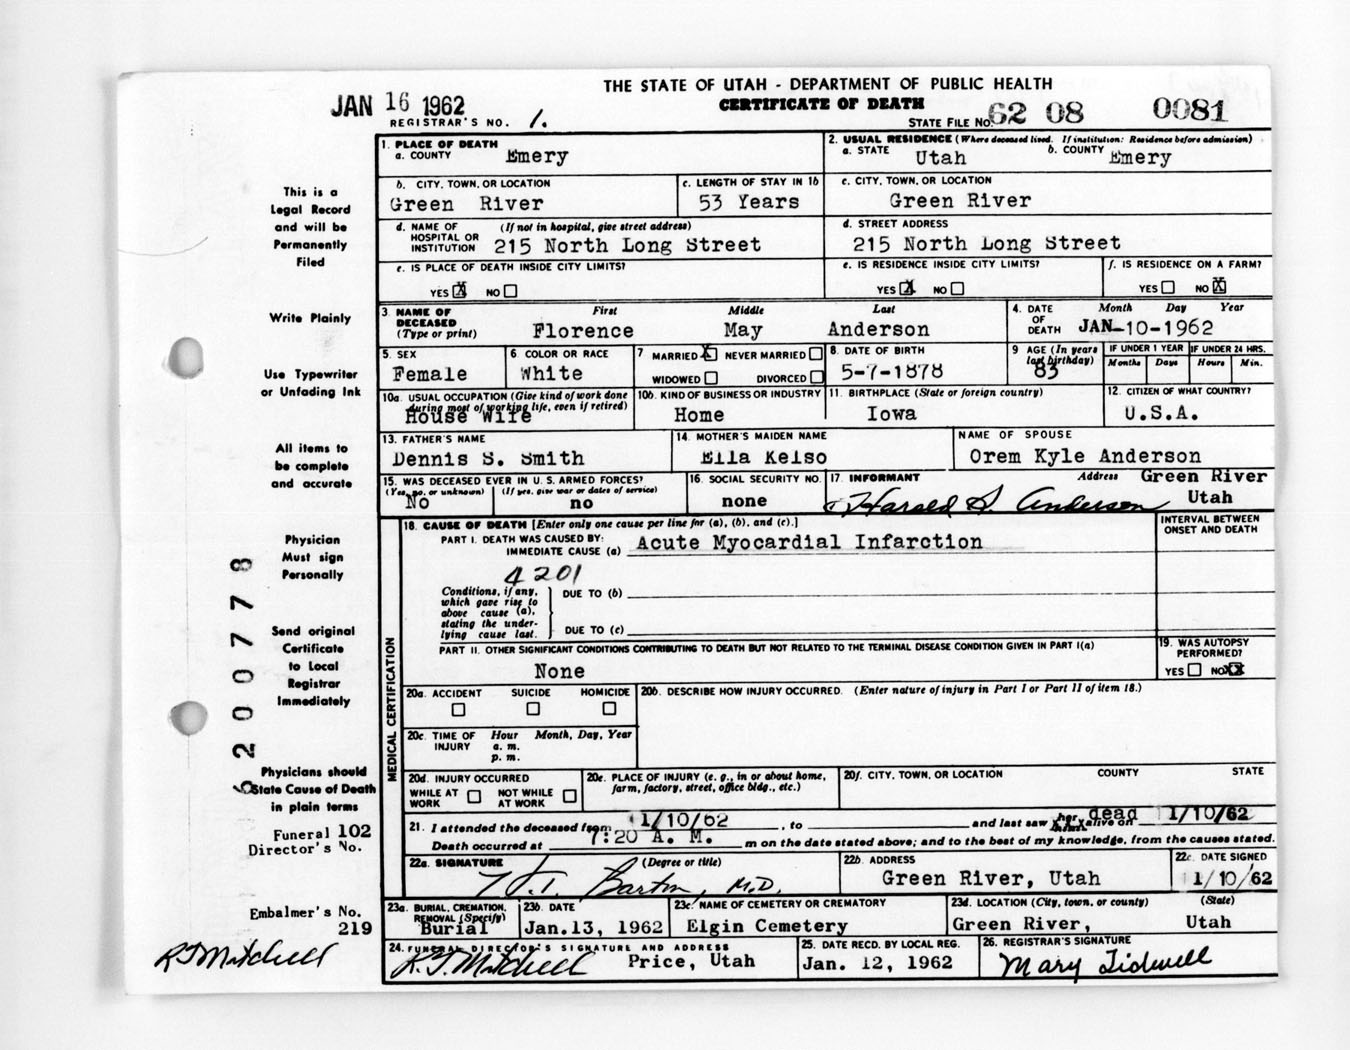 THE STATE OF UTAH - DEPARTMENT OF PUBLIC HEALTH
JAN 16 1962
CERTIFICATE OF DEATH
REGISTRAR'S NO. 1.
STATE FILE NO. 62 08 0081
This is a
Legal Record
and will be
Permanently
Filed
Write Plainly
Use Typewriter
or Unfading Ink
All items to
be complete
and accurate
Physician
Must sign
Personally
Send original
Certificate
to Local
Registrar
Immediately
Physicians should
State Cause of Death
in plain terms
Funeral 102
Director's No.
Embalmer's No.
219
R T Mitchell
620077 8
1. PLACE OF DEATH
a. COUNTY Emery
2. USUAL RESIDENCE (Where deceased lived. If institution: Residence before admission)
a. STATE Utah b. COUNTY Emery
b. CITY, TOWN, OR LOCATION
Green River
c. LENGTH OF STAY IN 1b
53 Years
c. CITY, TOWN, OR LOCATION
Green River
d. NAME OF HOSPITAL OR INSTITUTION (If not in hospital, give street address)
215 North Long Street
d. STREET ADDRESS
215 North Long Street
e. IS PLACE OF DEATH INSIDE CITY LIMITS?
YES X NO
e. IS RESIDENCE INSIDE CITY LIMITS?
YES X NO
f. IS RESIDENCE ON A FARM?
YES NO X
3. NAME OF DECEASED (Type or print) First Middle Last
Florence May Anderson
4. DATE OF DEATH Month Day Year
JAN-10-1962
5. SEX
Female
6. COLOR OR RACE
White
7 MARRIED X NEVER MARRIED
WIDOWED DIVORCED
8. DATE OF BIRTH
5-7-1878
9 AGE (In years last birthday)
83
IF UNDER 1 YEAR
Months Days
IF UNDER 24 HRS.
Hours Min.
10a. USUAL OCCUPATION (Give kind of work done during most of working life, even if retired)
House Wife
10b. KIND OF BUSINESS OR INDUSTRY
Home
11. BIRTHPLACE (State or foreign country)
Iowa
12. CITIZEN OF WHAT COUNTRY?
U.S.A.
13. FATHER'S NAME
Dennis S. Smith
14. MOTHER'S MAIDEN NAME
Ella Kelso
NAME OF SPOUSE
Orem Kyle Anderson
15. WAS DECEASED EVER IN U. S. ARMED FORCES?
(Yes, no, or unknown) (If yes, give war or dates of service)
No no
16. SOCIAL SECURITY NO.
none
17. INFORMANT Address Green River
Harald S. Anderson Utah
MEDICAL CERTIFICATION
18. CAUSE OF DEATH [Enter only one cause per line for (a), (b), and (c).]
INTERVAL BETWEEN ONSET AND DEATH
PART I. DEATH WAS CAUSED BY:
IMMEDIATE CAUSE (a) Acute Myocardial Infarction
4201
Conditions, if any, which gave rise to above cause (a), stating the underlying cause last.
DUE TO (b)
DUE TO (c)
PART II. OTHER SIGNIFICANT CONDITIONS CONTRIBUTING TO DEATH BUT NOT RELATED TO THE TERMINAL DISEASE CONDITION GIVEN IN PART I(a)
None
19. WAS AUTOPSY PERFORMED?
YES NO XX
20a. ACCIDENT SUICIDE HOMICIDE
20b. DESCRIBE HOW INJURY OCCURRED. (Enter nature of injury in Part I or Part II of item 18.)
20c. TIME OF INJURY Hour Month, Day, Year
a. m.
p. m.
20d. INJURY OCCURRED
WHILE AT WORK NOT WHILE AT WORK
20e. PLACE OF INJURY (e. g., in or about home, farm, factory, street, office bldg., etc.)
20f. CITY, TOWN, OR LOCATION COUNTY STATE
21. I attended the deceased from 1/10/62, to and last saw her alive on dead 1/10/62
Death occurred at 7:20 A. M. m on the date stated above; and to the best of my knowledge, from the causes stated.
22a. SIGNATURE (Degree or title)
Barton, M.D.
22b. ADDRESS
Green River, Utah
22c. DATE SIGNED
1/10/62
23a. BURIAL, CREMATION, REMOVAL (Specify)
Burial
23b. DATE
Jan.13, 1962
23c. NAME OF CEMETERY OR CREMATORY
Elgin Cemetery
23d. LOCATION (City, town, or county) (State)
Green River, Utah
24. FUNERAL DIRECTOR'S SIGNATURE AND ADDRESS
R. T. Mitchell Price, Utah
25. DATE RECD. BY LOCAL REG.
Jan. 12, 1962
26. REGISTRAR'S SIGNATURE
Mary Tidwell